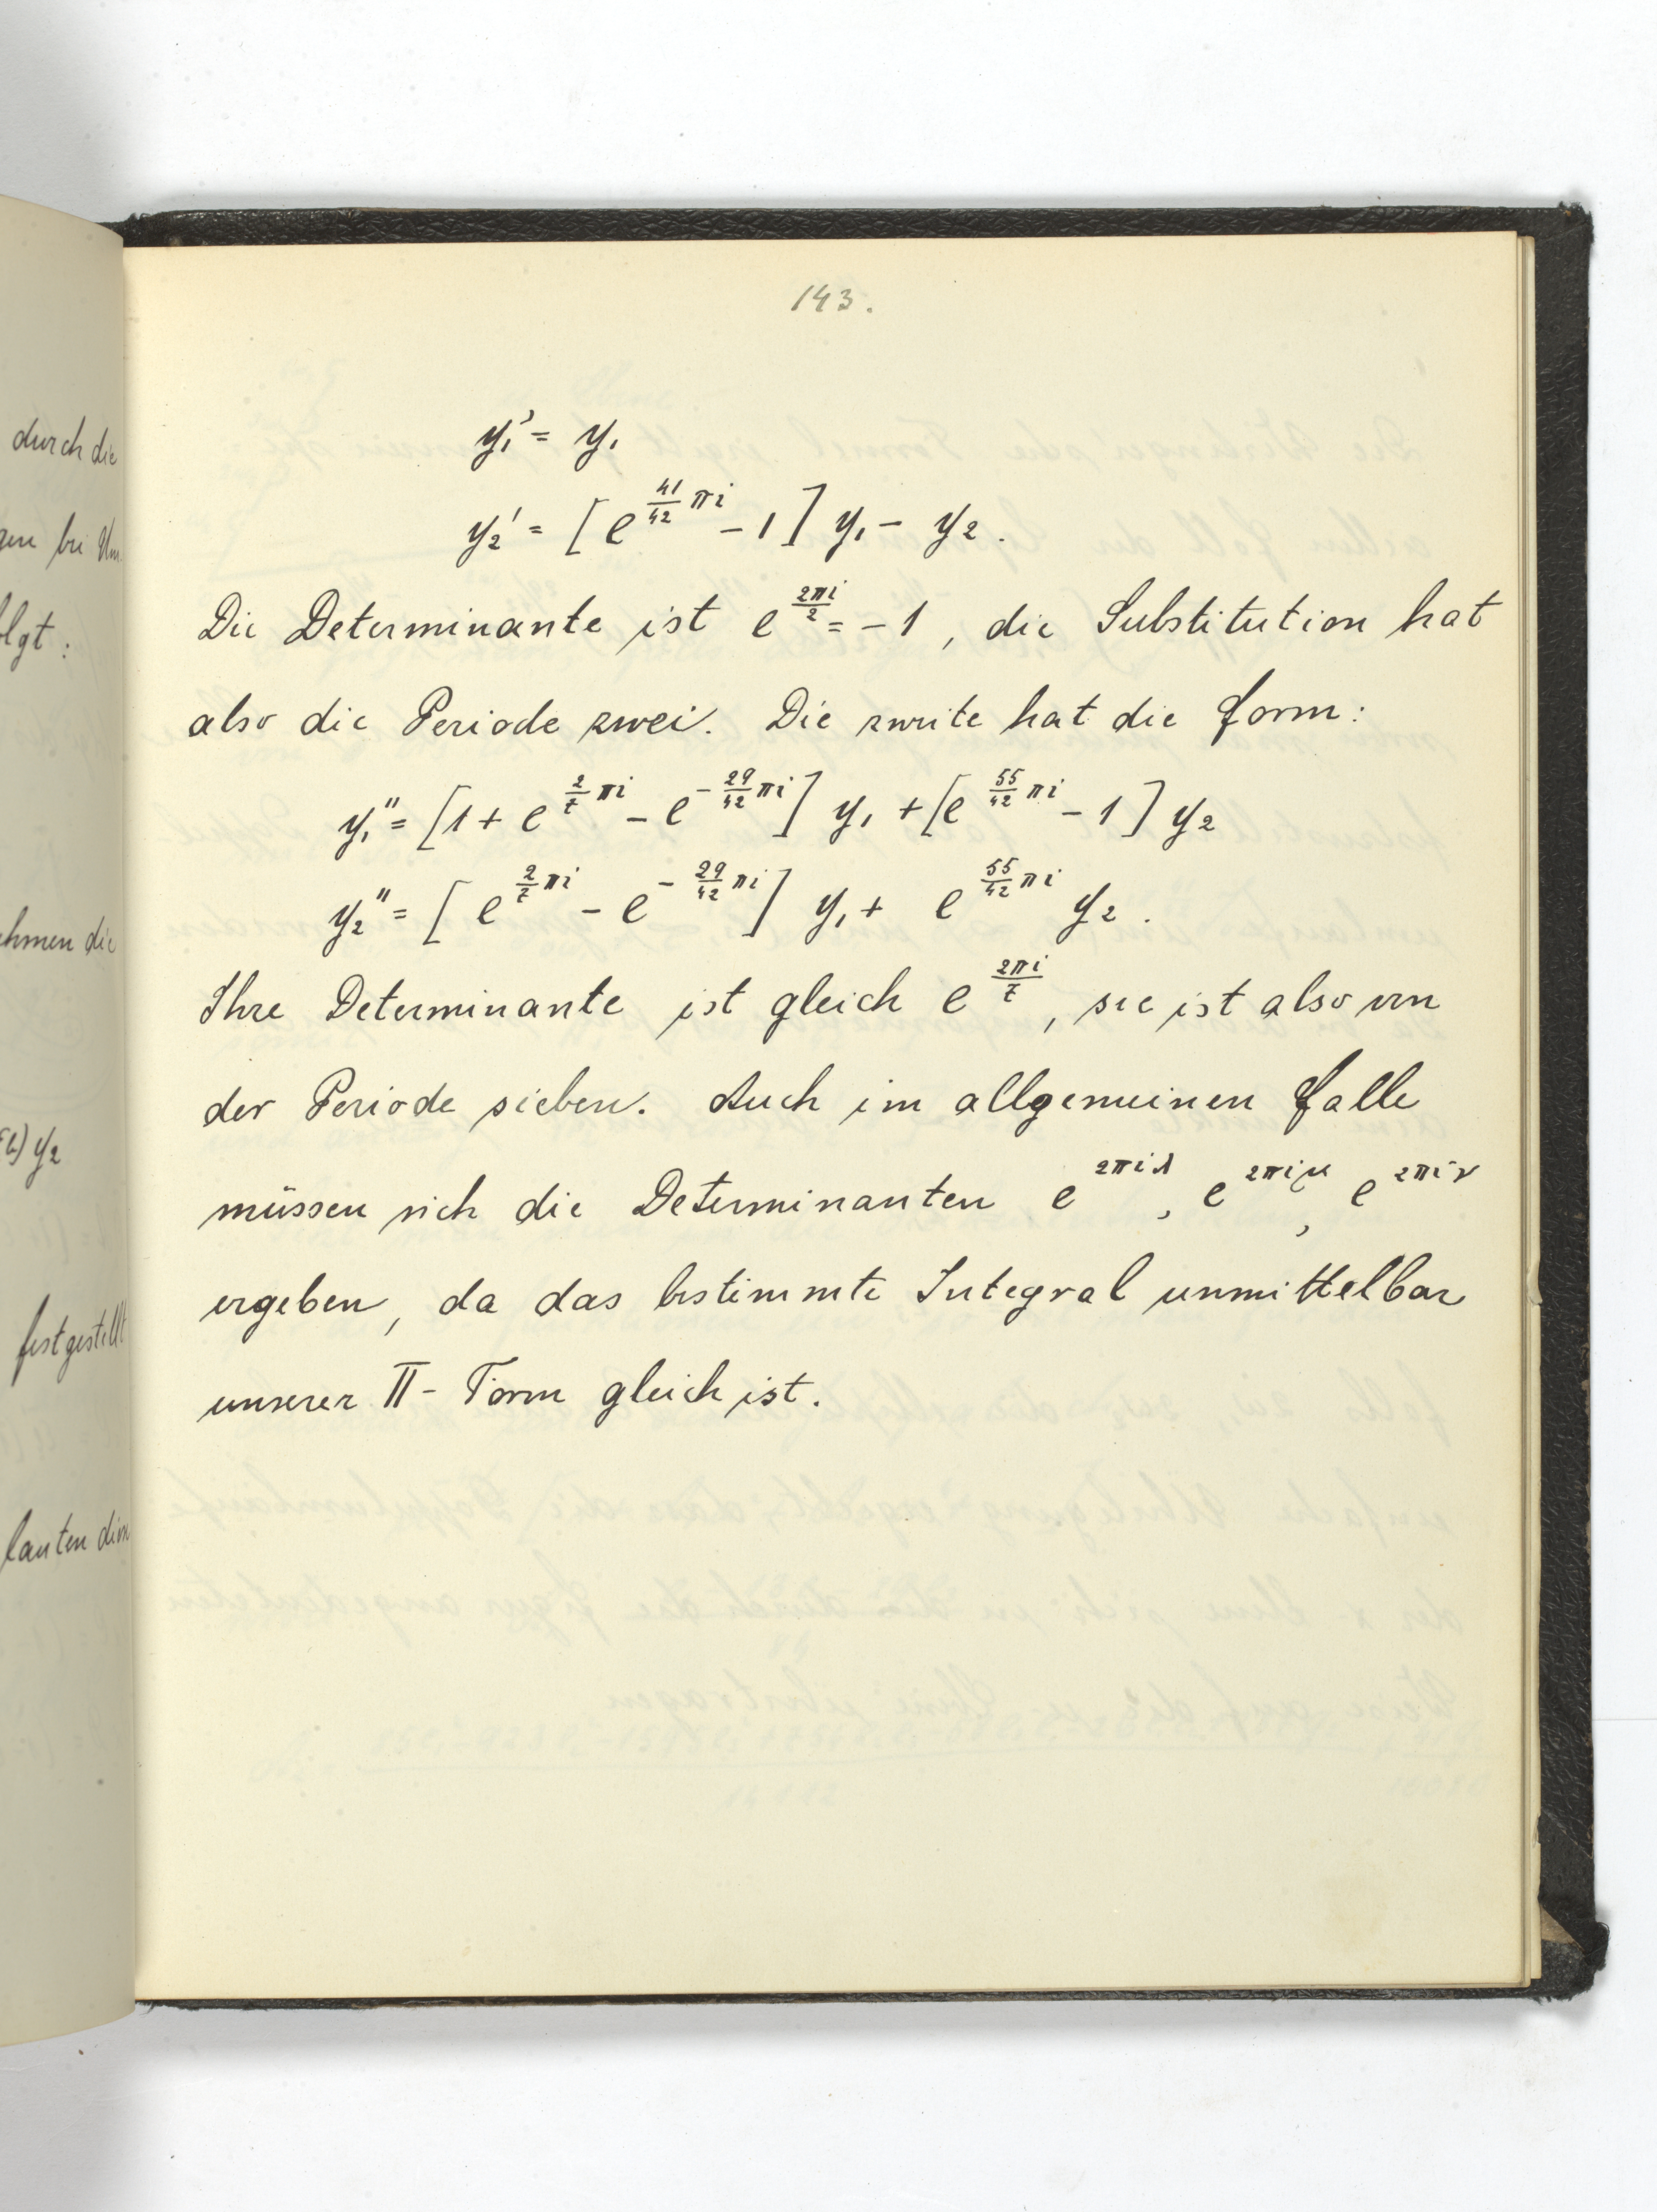 143.
y₁' = y₁
y₂' = [e^{41/42 πi} - 1] y₁ - y₂.
Die Determinante ist e^{2πi/2} = -1, die Substitution hat
also die Periode zwei. Die zweite hat die Form:
y₁'' = [1 + e^{2/7 πi} - e^{-29/42 πi}] y₁ + [e^{55/42 πi} - 1] y₂
y₂'' = [e^{2/7 πi} - e^{-29/42 πi}] y₁ + e^{55/42 πi} y₂.
Ihre Determinante ist gleich e^{2πi/7}, sie ist also von
der Periode sieben. Auch im allgemeinen Falle
müssen sich die Determinanten e^{2πiλ}, e^{2πiμ}, e^{2πiν}
ergeben, da das bestimmte Integral unmittelbar
unserer Π-Form gleich ist.
durch die
gen bei Um
olgt:
ehmen die
y₂
festgestellt
lauten